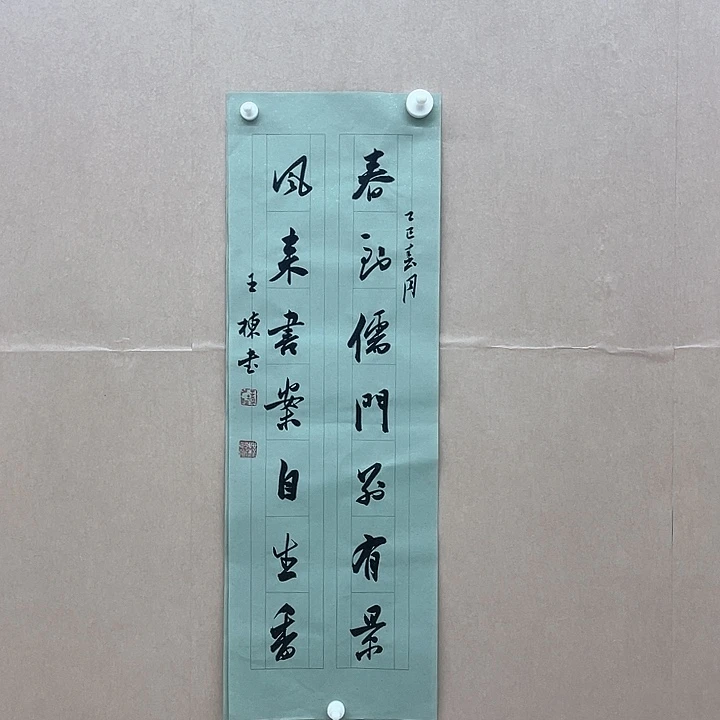 春到儒門別有景
乙巳春月
风来書案自生香
王棟書